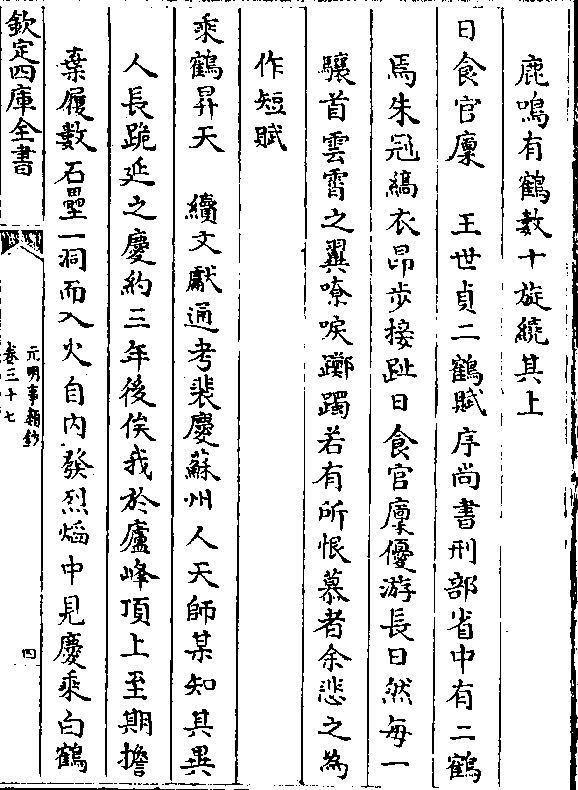 鹿鳴有鶴數十旋繞其上
日食官廩　王世貞二鶴賦序尚書刑部省中有二鶴
焉朱冠縞衣昂步接趾日食官廩優游長日然每一
驤首雲霄之翼嘹唳躑躅若有所恨慕者余悲之為
作短賦
乘鶴昇天　續文獻通考裴慶蘇州人天師某知其異
人長跪延之慶約三年後俟我於廬峰頂上至期擔
棄履數石壘一洞而入火自内發烈熖中見慶乘白鶴
欽定四庫全書
元明事類鈔
卷三十七
四